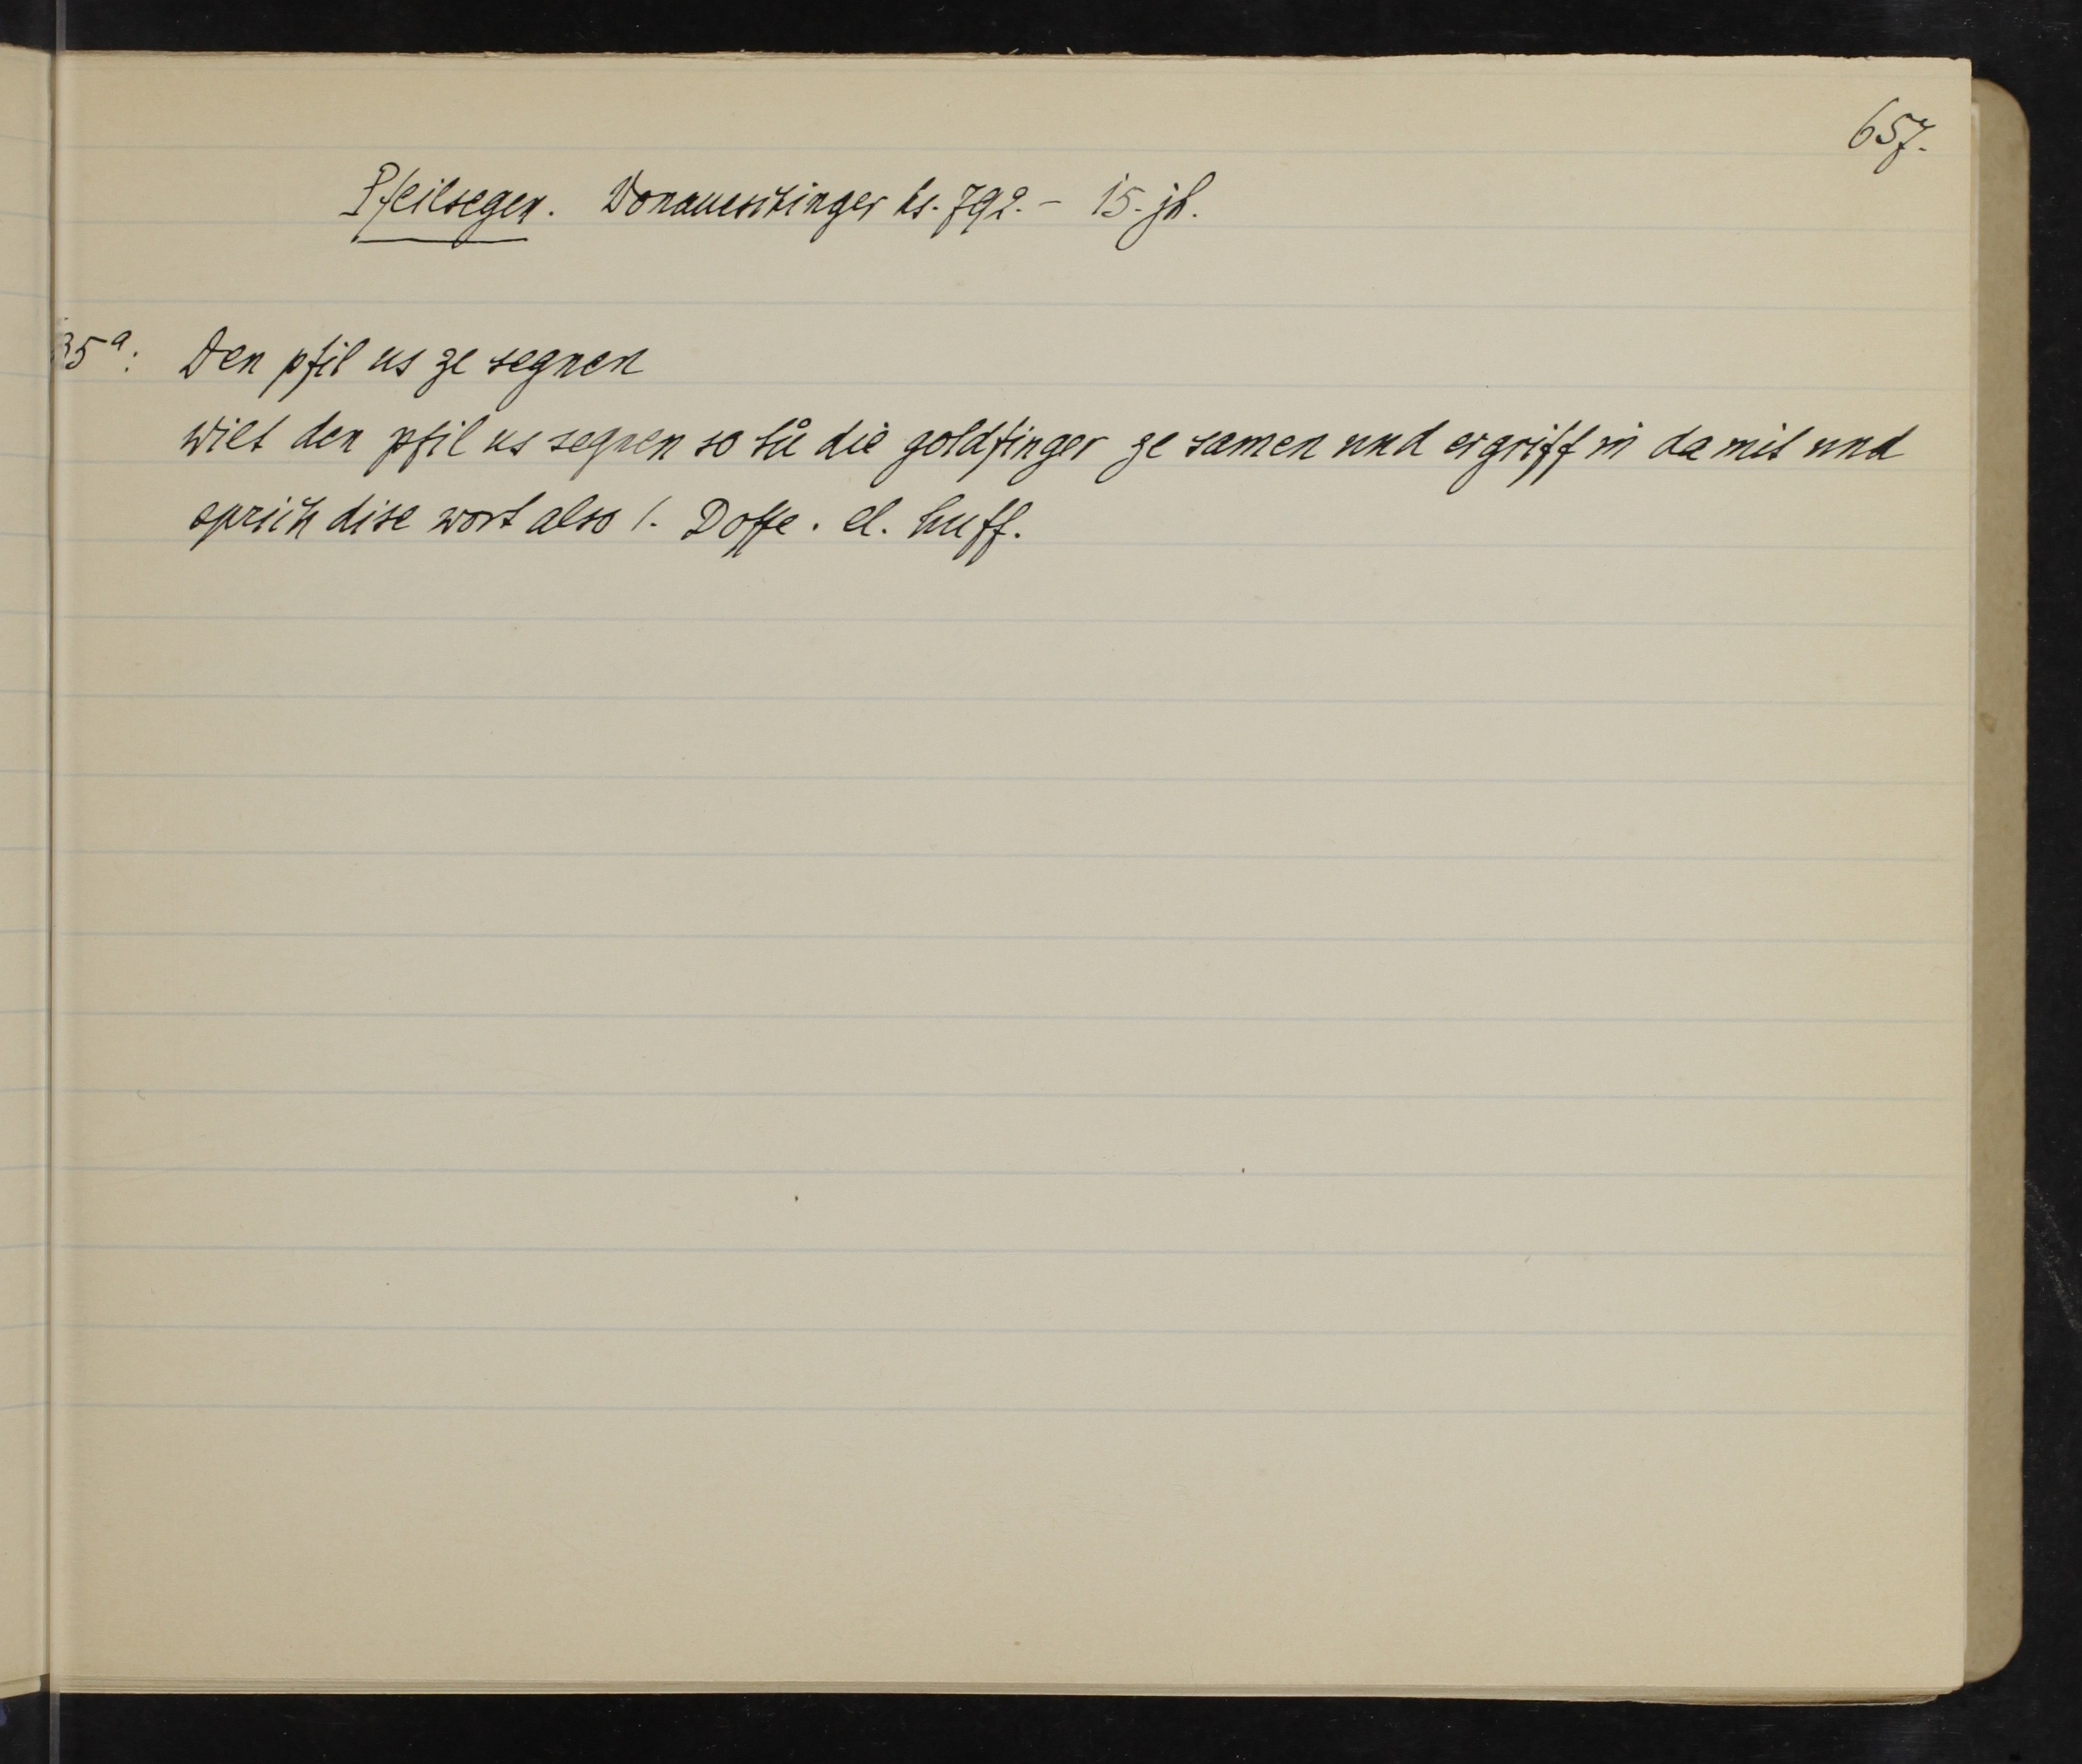 657.
Pfeilsegen. Donaueschinger hs. 792. – 15. jh.
35ᵃ: Den pfil us ze segnen
wilt den pfil us segnen so tů die goldfinger ze samen und ergriff in da mit und
sprich dise wort also /. Doffe. el. huff.